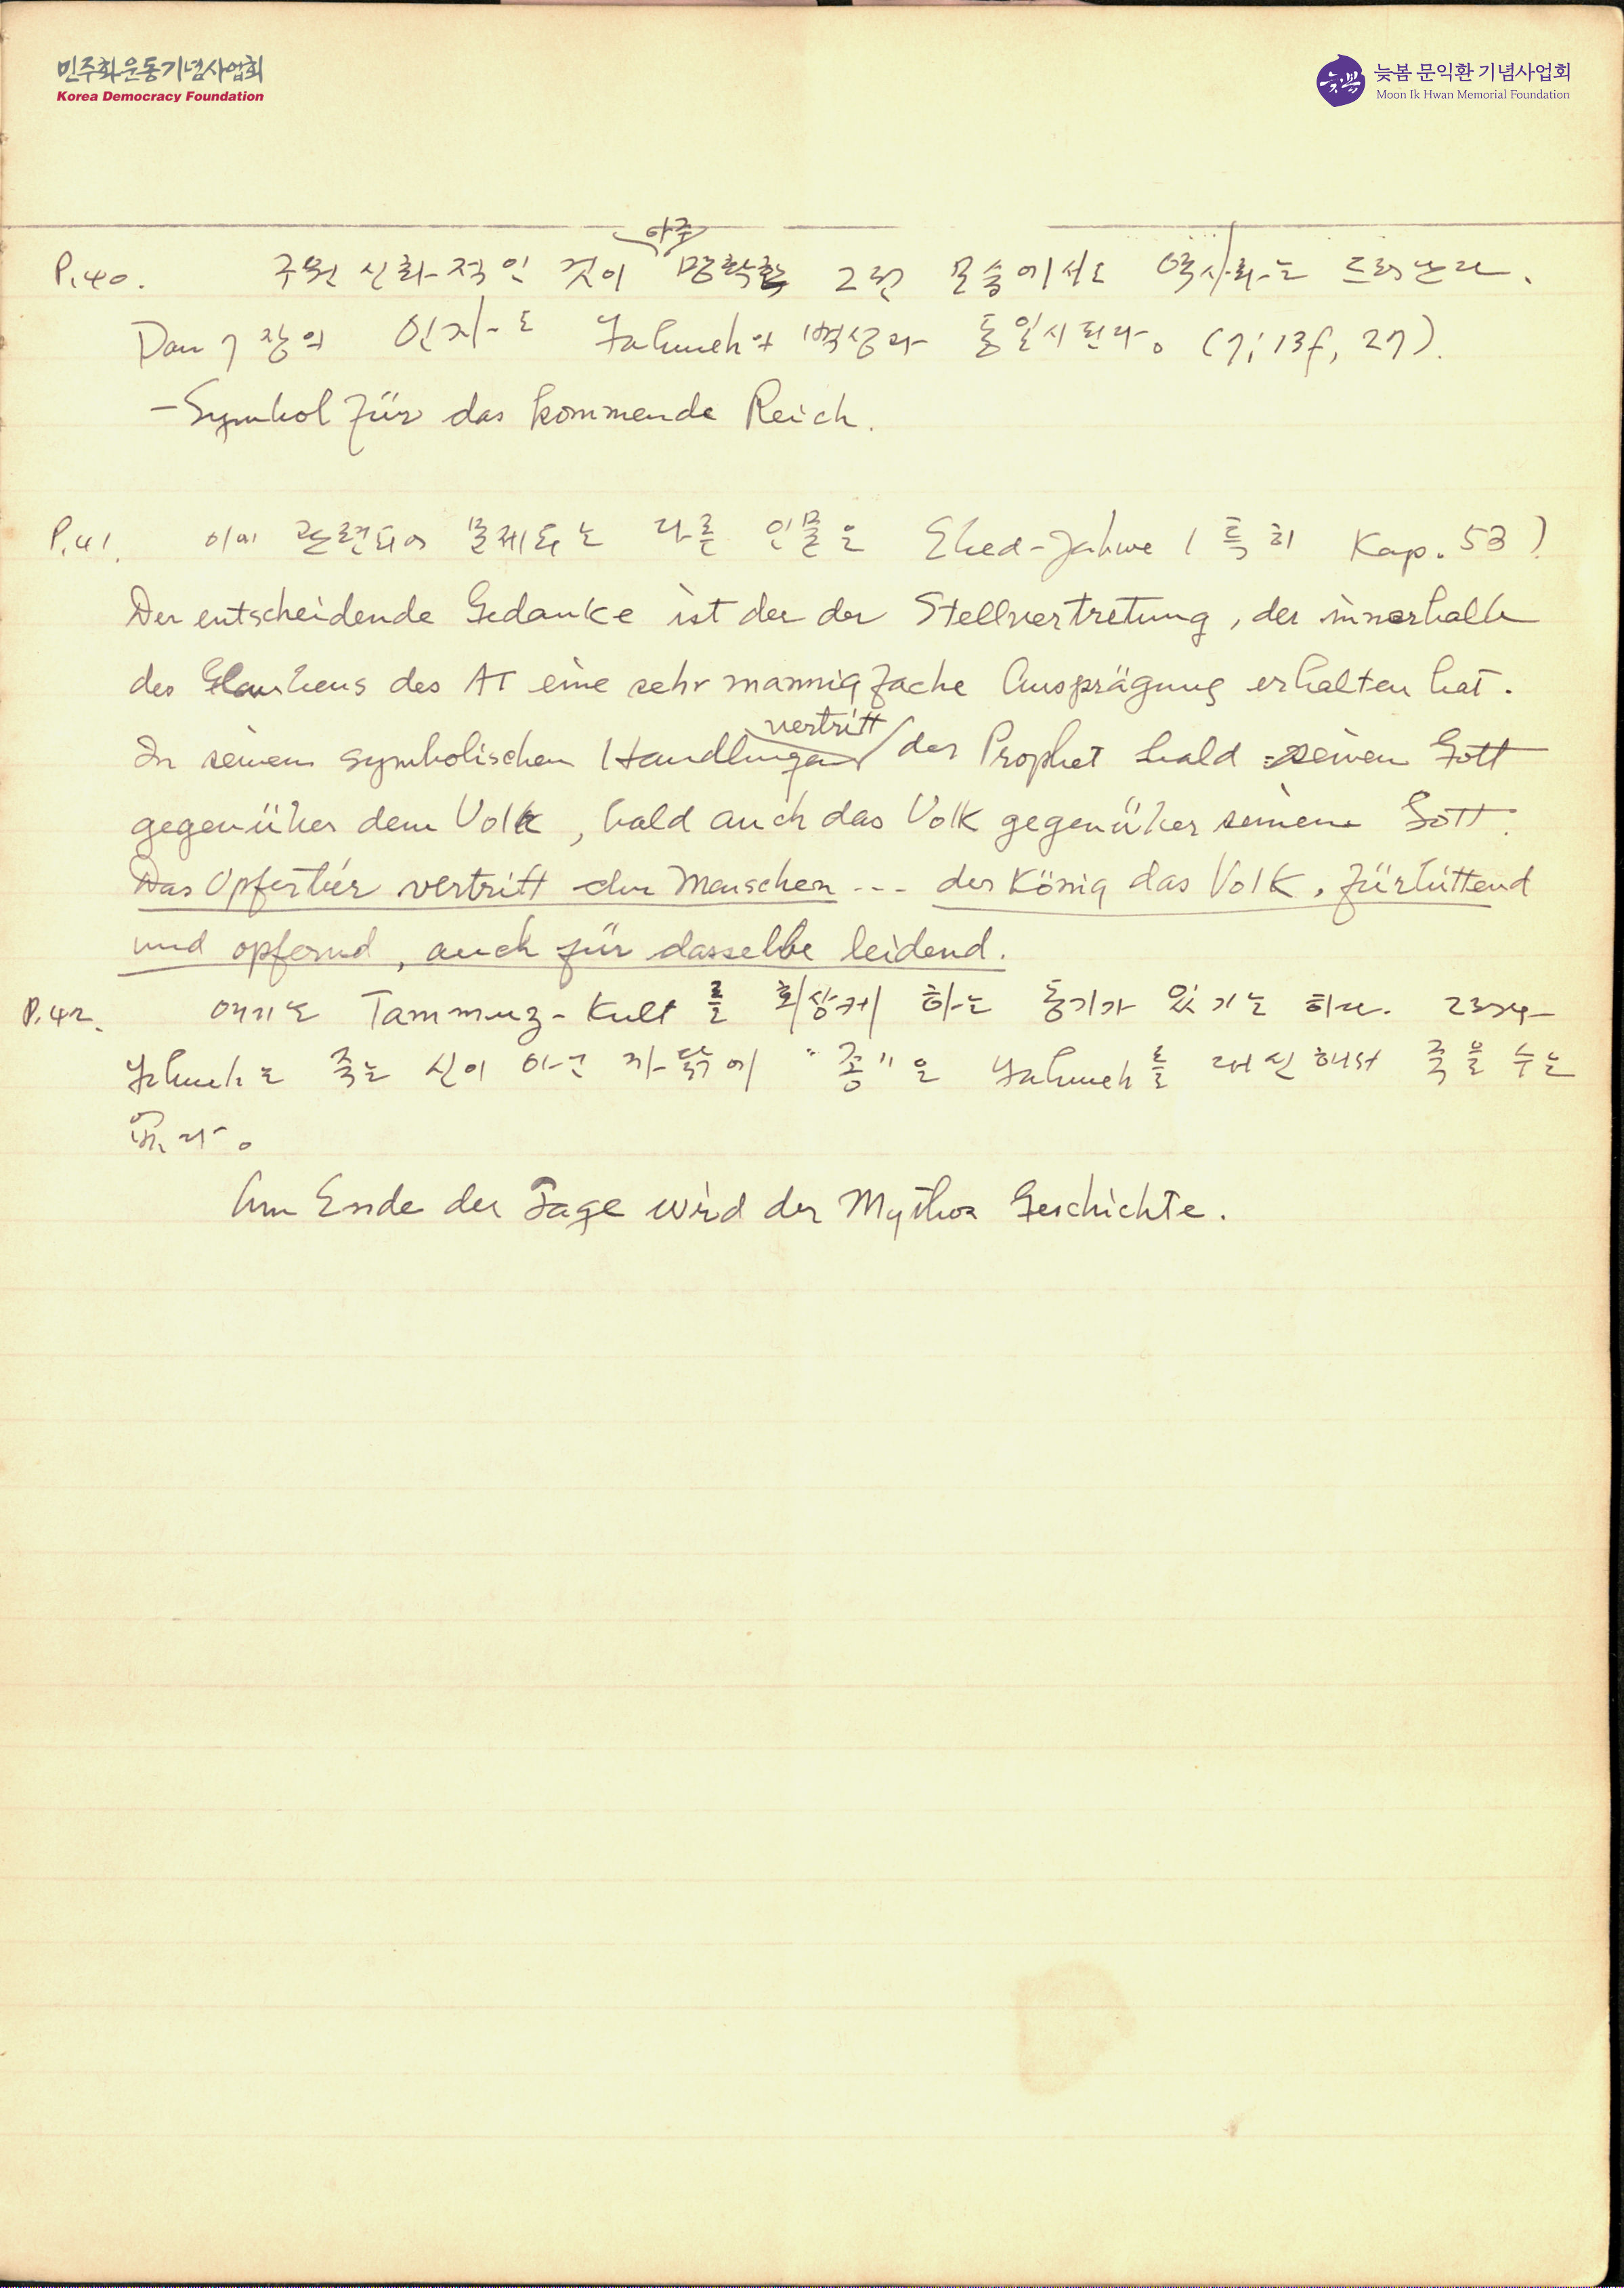 민주화운동기념사업회
Korea Democracy Foundation
늦봄
늦봄 문익환 기념사업회
Moon Ik Hwan Memorial Foundation
아주
P.40. 구원 신화적인 것이 명확한 그런 모습에서도 역사화는 드러난다.
Dan 7장의 인자도 Yahweh의 백성과 동일시된다. (7; 13f, 27).
- Symbol für das kommende Reich.
P.41. 이에 관련되어 문제되는 다른 인물은 Ebed-Jahwe (특히 Kap. 53).
Der entscheidende Gedanke ist der der Stellvertretung, der innerhalb
des Glaubens des AT eine sehr mannigfache Ausprägung erhalten hat.
vertritt
In seinen symbolischen Handlungen der Prophet bald seinen Gott
gegenüber dem Volk, bald auch das Volk gegenüber seinem Gott.
Das Opfertier vertritt den Menschen --- der König das Volk, fürbittend
und opfernd, auch für dasselbe leidend.
P.42. 여기도 Tammuz-Kult를 회상케 하는 동기가 있기는 하다. 그러나
Yahweh는 죽는 신이 아닌 까닭에 "종"은 Yahweh를 대신해서 죽을 수는
없다.
Am Ende der Tage wird der Mythos Geschichte.